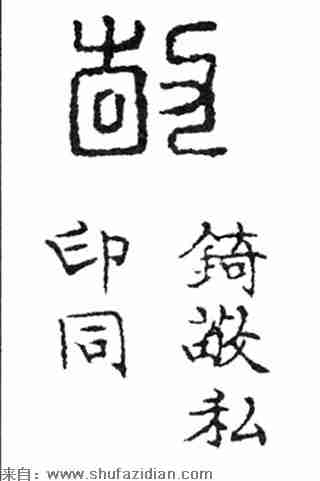 敬
錡敬私
印同
来自：www.shufazidian.com